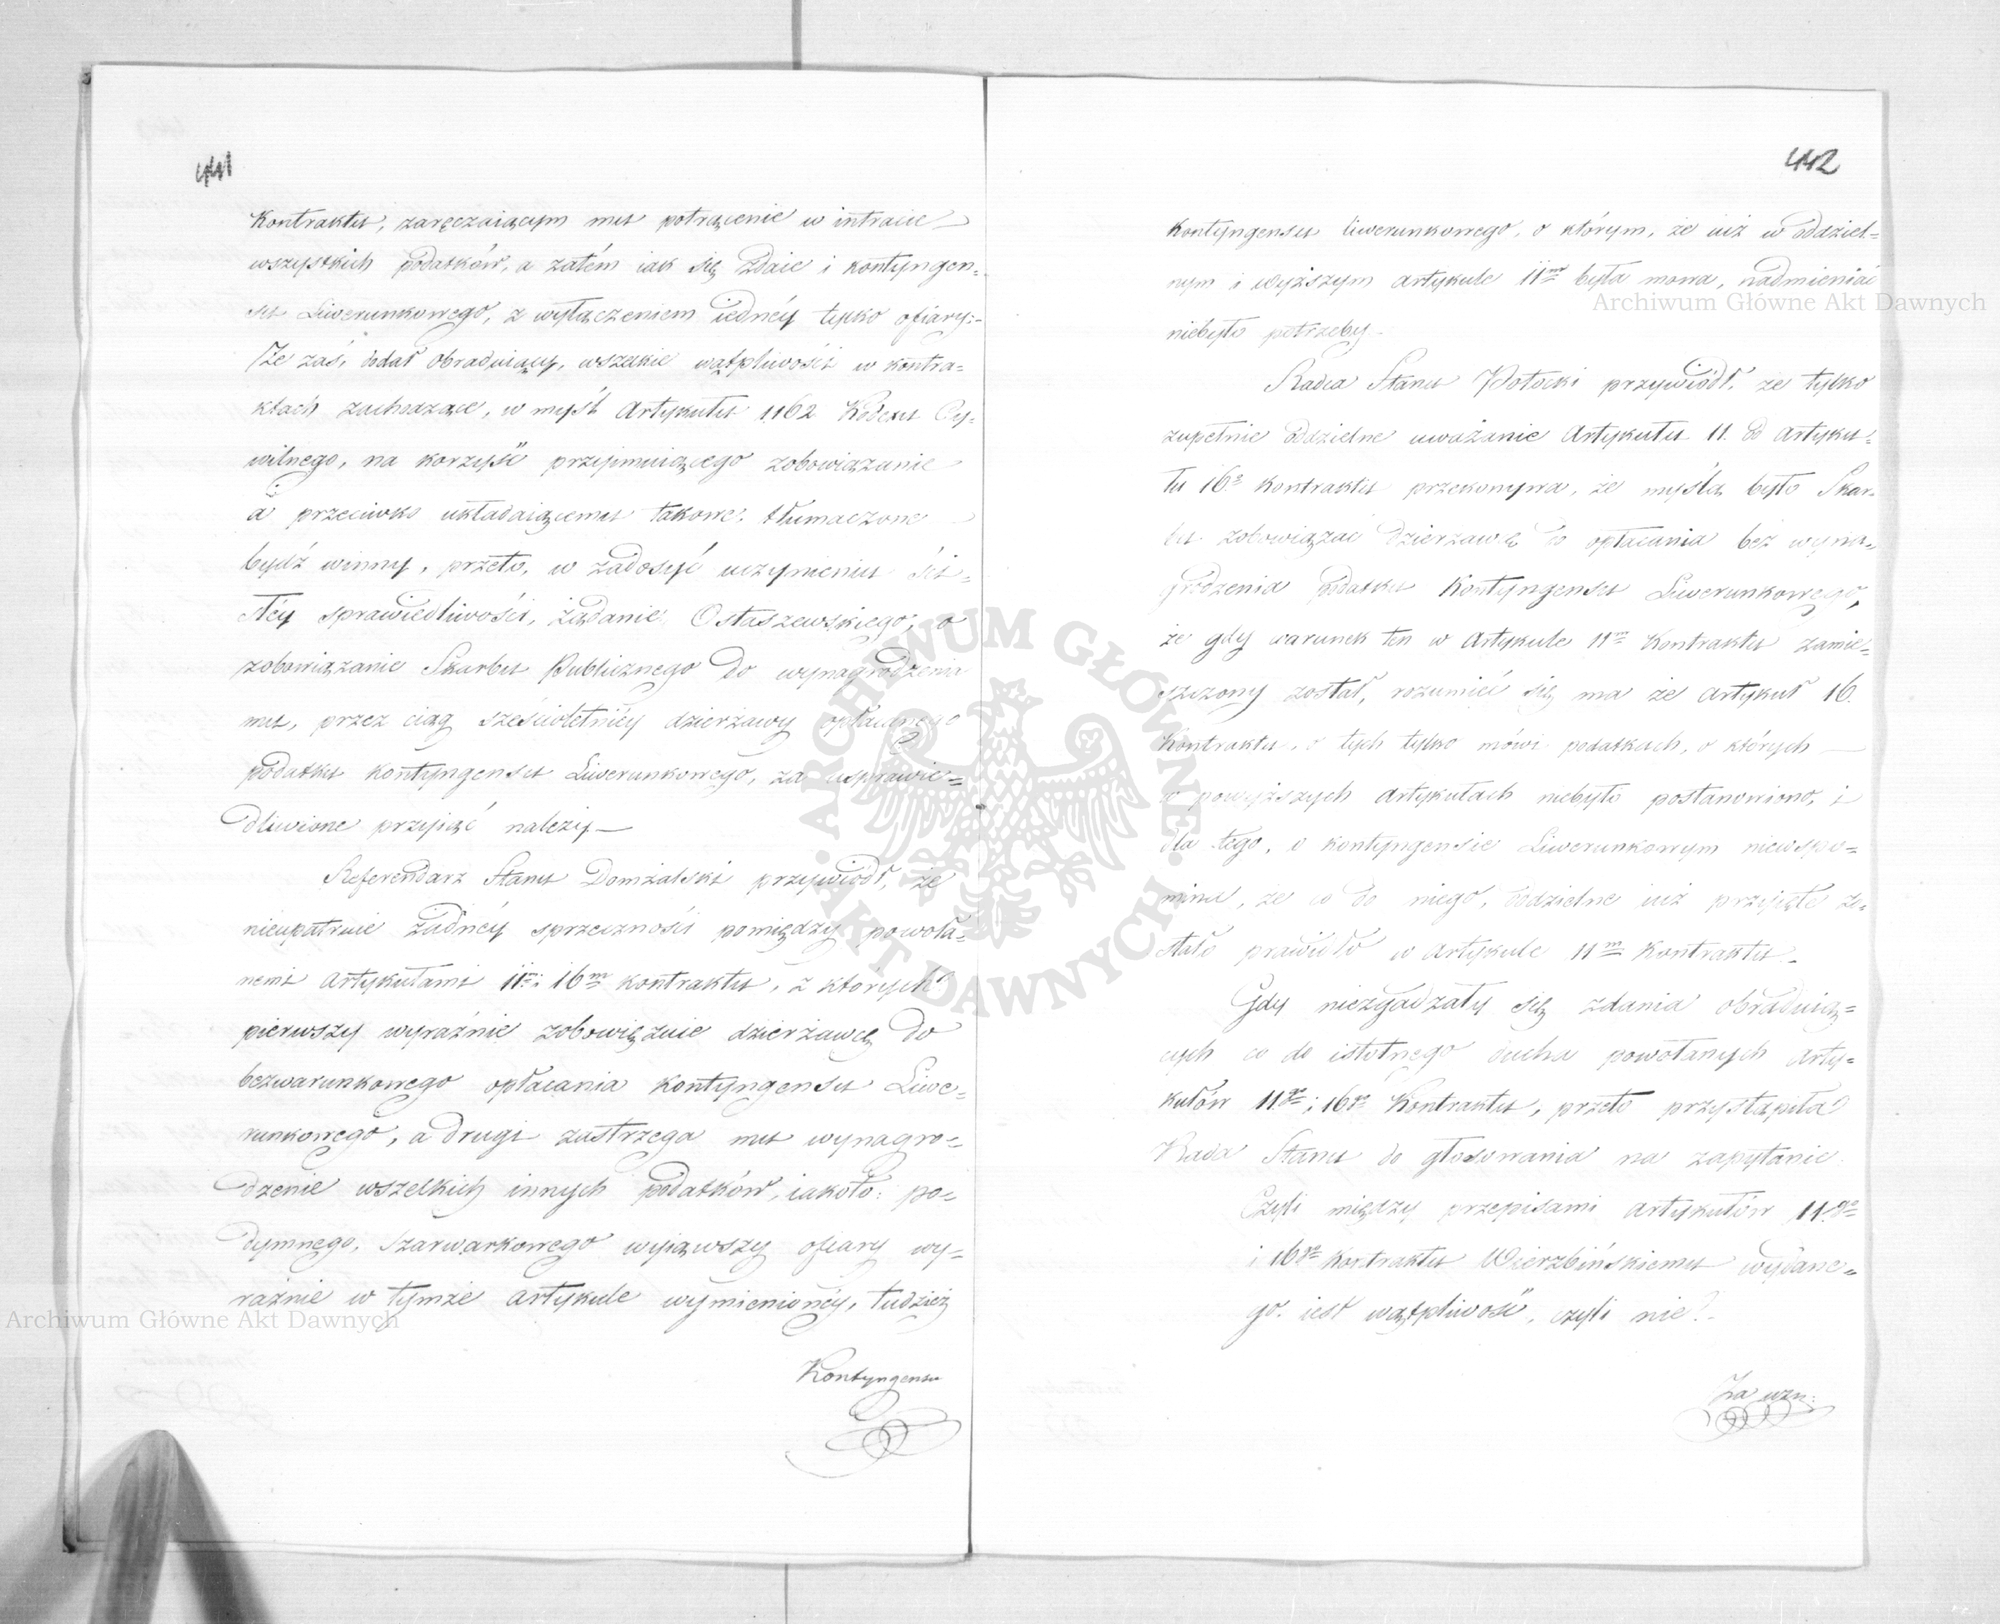 441
Kontraktu, zaręczaiącym mu potrącenie w intracie
wszystkich podatków, a zatém iak się zdaie i kontyngen-
su Liwerunkowego, z wyłączeniem iednéy tylko ofiary:-
Że zaś, dodał obraduiący, wszelkie wątpliwości w kontra-
ktach zachodzące, w myśl Artykułu 1162 Kodexu Cy-
wilnego, na korzyść przyimuiącego zobowiązanie
a przeciwko układaiącemu takowe, tłumaczone
bydź winny, przeto, w zadosyć uczynieniu ści-
słéy sprawiedliwości, żądanie Ostaszewskiego, o
zobowiązanie Skarbu Publicznego do wynagrodzenia
mu, przez ciąg sześcioletniéy dzierżawy opłacanego
podatku kontyngensu Liwerunkowego, za usprawie-
dliwione przyiąć należy—
Referendarz Stanu Domżalski przywiódł, że
nieupatruie żadnéy sprzeczności pomiędzy powoła-
nemi Artykułami 11m i 16m kontraktu, z których
pierwszy wyraźnie zobowięzuie dzierżawcę do
bezwarunkowego opłacania kontyngensu Liwe-
runkowego, a drugi zastrzega mu wynagro-
dzenie wszelkich innych podatków, iakoto: po-
dymnego, szarwarkowego wyiąwszy ofiary wy-
raźnie w tymże artykule wymienionéy, tudzież
Kontyngensu
442
kontyngensu liwerunkowego, o którym, że iuż w oddziel-
nym i wyższym artykule 11m była mowa, nadmieniać
niebyło potrzeby.
Radca Stanu Potocki przywiódł, że tylko
zupełnie oddzielne uważanie Artykułu 11. od Artyku-
łu 16o kontraktu przekonywa, że myślą było Skar-
bu zobowiązać dzierżawcę do opłacania bez wyna-
grodzenia podatku Kontyngensu Liwerunkowego,
że gdy warunek ten w Artykule 11m Kontraktu zamie-
szczony został, rozumieć się ma że Artykuł 16.
Kontraktu, o tych tylko mówi podatkach, o których
w powyższych Artykułach niebyło postanowiono, i
dla tego, o kontyngensie Liwerunkowym niewspo-
mina, że co do niego, oddzielne iuż przyięte zo-
stało prawidło w Artykule 11m Kontraktu.
Gdy niezgadzały się zdania obraduią-
cych co do istotnego ducha powołanych Arty-
kułów 11go i 16go Kontraktu, przeto przystąpiła
Rada Stanu do głosowania na zapytanie
Czyli między przepisami Artykułów 11go
i 16go Kontraktu Wierzbińskiemu wydane-
go, iest wątpliwość, czyli nie?
Za uzn:
Archiwum Główne Akt Dawnych
Archiwum Główne Akt Dawnych
ARCHIWUM GŁÓWNE AKT DAWNYCH